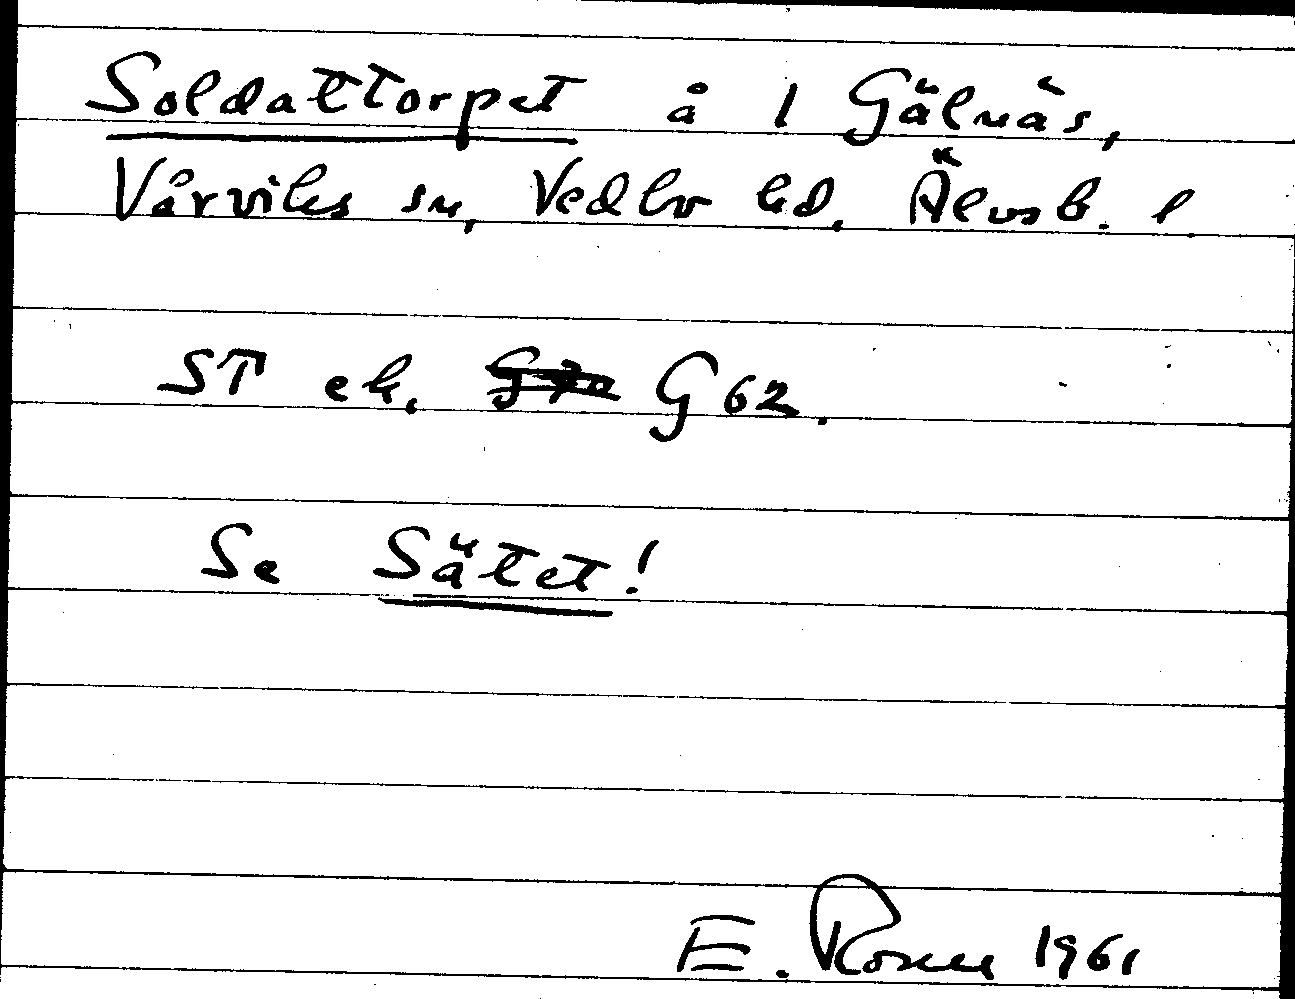 Soldattorpet å 1 Gälnäs,
Vårviks sn, Vedbo hd. Älvsb. l.
ST ek. G 62.
Se Sätet!
E. Rosell 1961